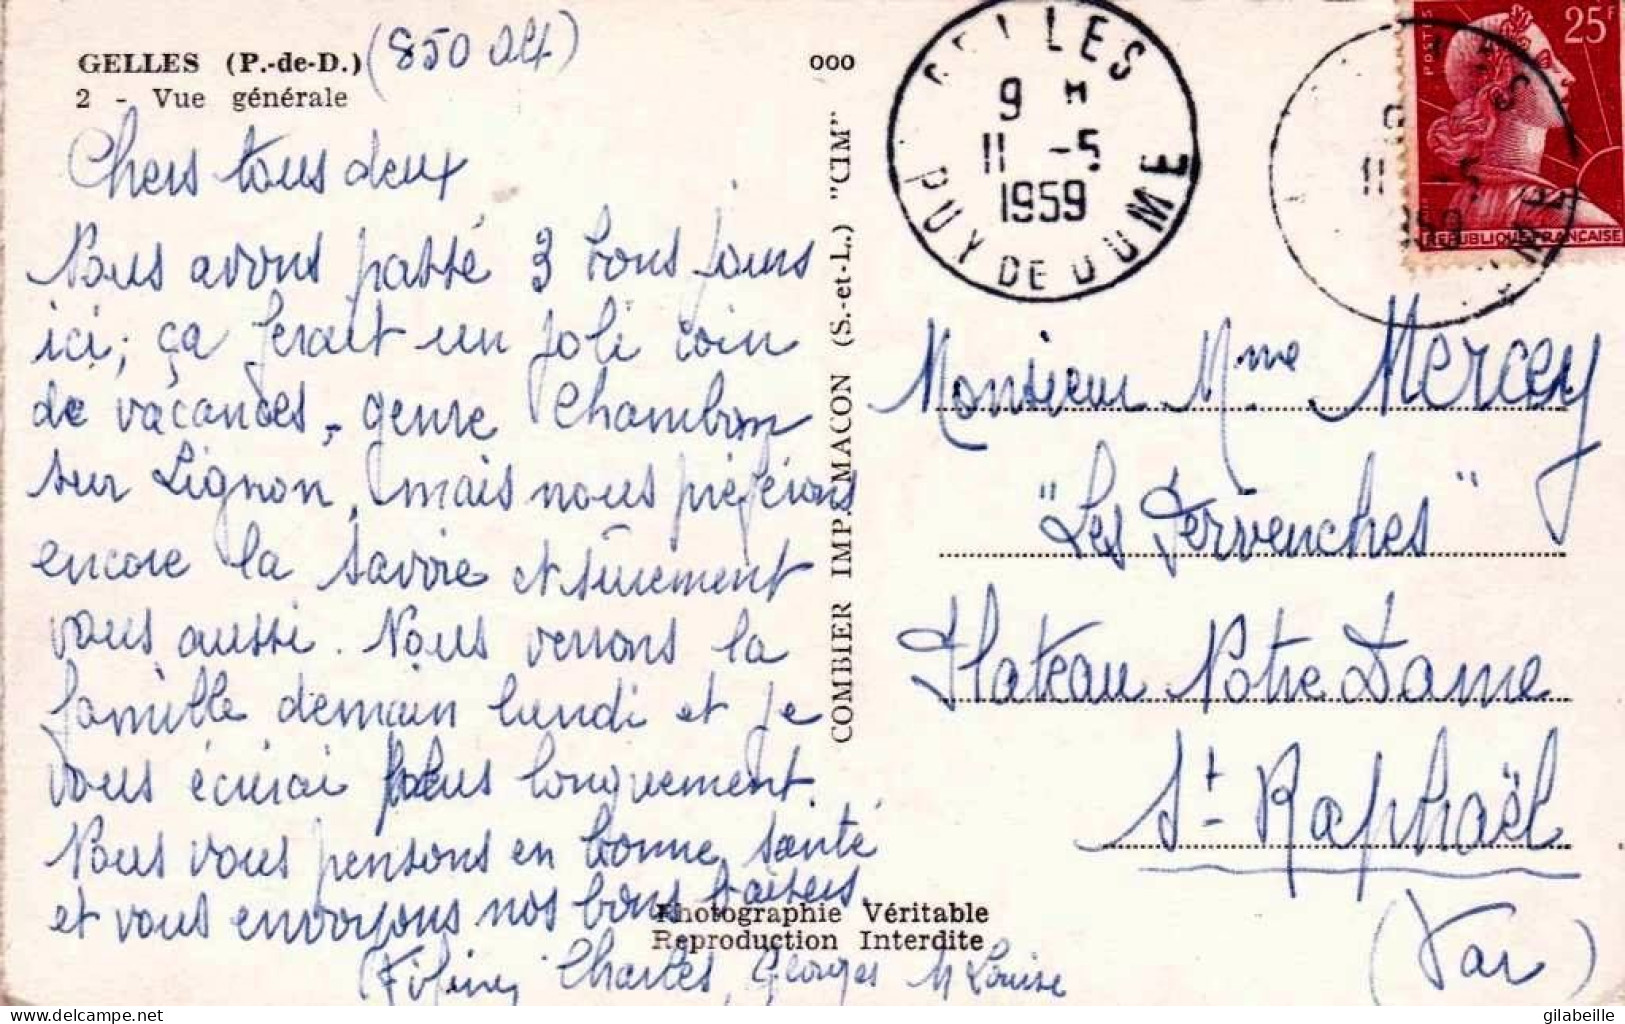 GELLES (P.-de-D.) (850 Alt)
2 - Vue générale
Chers tous deux
Nous avons passé 3 bons jours
ici; ça ferait un joli coin
de vacances, genre Chambon
sur Lignon, mais nous préférons
encore la Savoie et sûrement
vous aussi. Nous verrons la
famille demain lundi et je
vous écrirai plus longuement.
Nous vous pensons en bonne santé
et vous envoyons nos bons baisers.
Charles, Georges M Louise
Photographie Véritable
Reproduction Interdite
COMBIER IMP. MACON (S.-et-L.) "CIM"
ooo
GELLES
9 H
11 -5
1959
PUY DE DOME
11 -5
POSTES
25F
REPUBLIQUE FRANÇAISE
Monsieur Mme Mercey
"Les Pervenches"
Plateau Notre Dame
St- Raphaël
(Var)
gilabeille